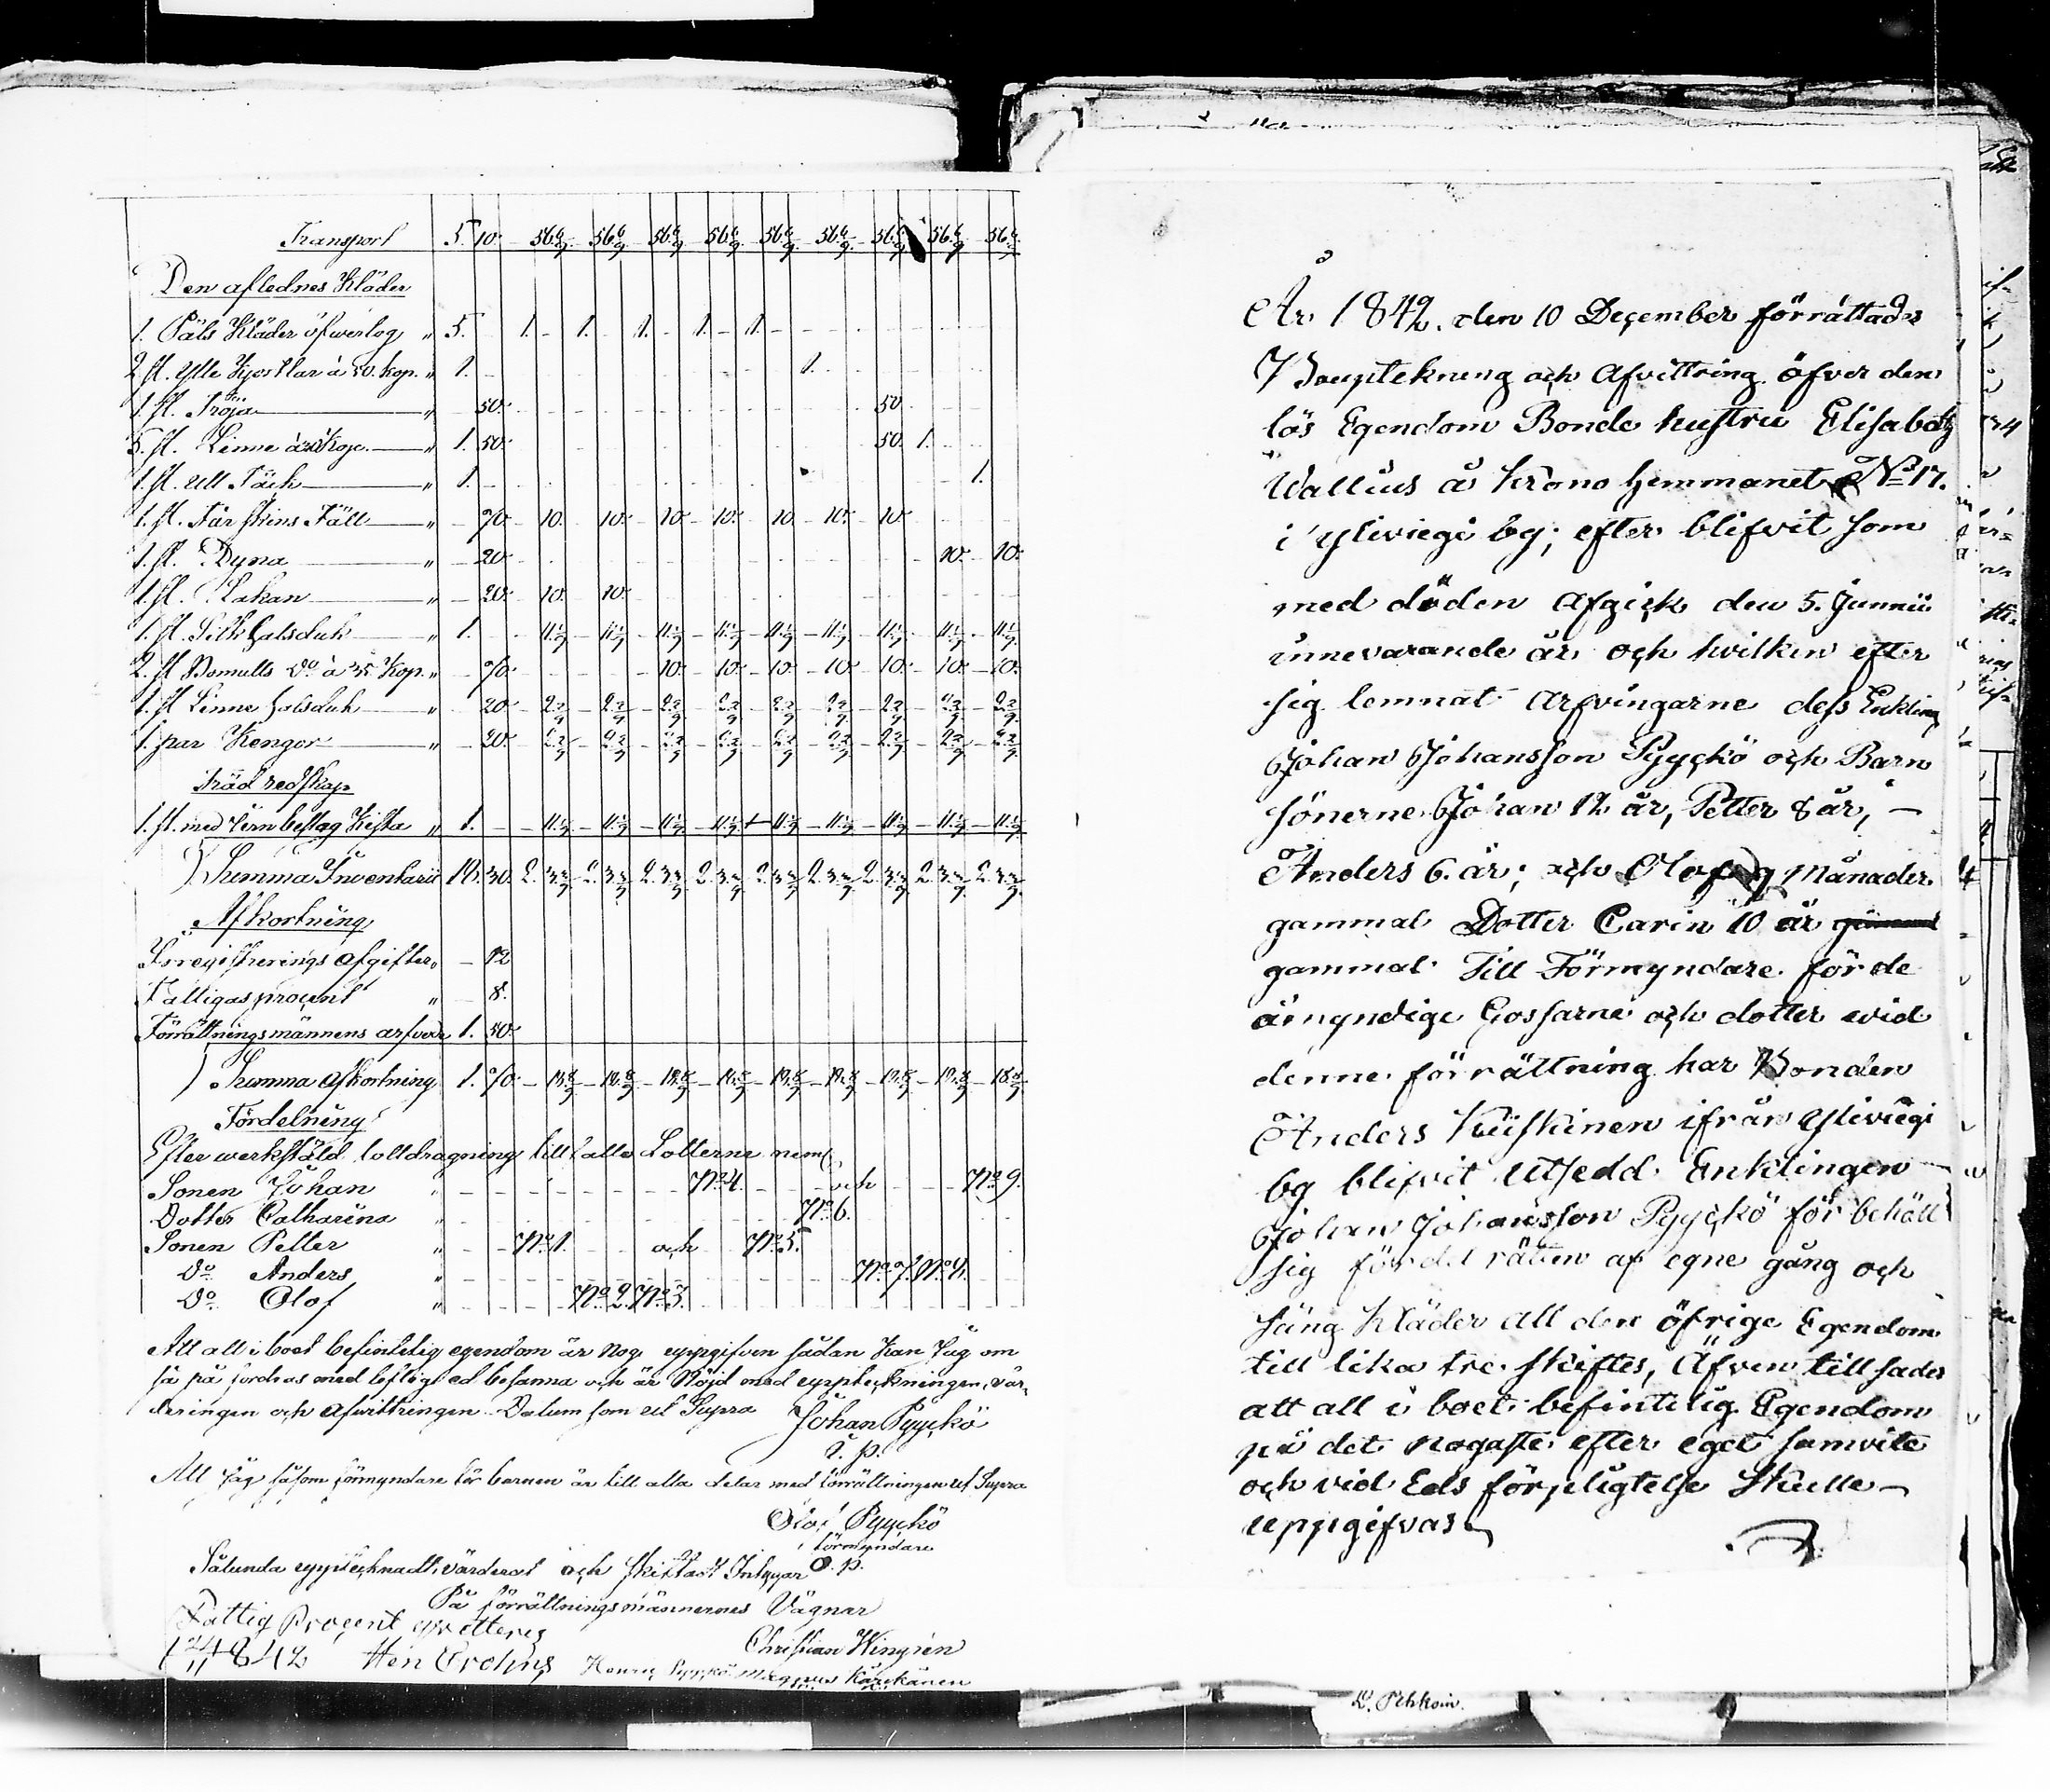 Transport 5. 10. 56 6/9 56 6/9 56 6/9 56 6/9 56 6/9 56 6/9 56 6/9 56 6/9 56 6/9
Den aflednes Kläder
1. Päls Kläder öfwerlog " 5. 1. 1. 1. 1. 1.
2 st. Ylle Kjortlar à 50. Kop. " 1. 1.
1. st. Tröja " 50. 50
5. st. Linne Kop. " 1. 50. 50. 1.
1. st. Ull Täck " 1. 1.
1. st. Får skins Fäll " 70. 10. 10. 10. 10. 10. 10. 10
1. st. Dyna " 20. 10. 10.
1. st. Lakan " 20. 10. 10.
1. st. Silk halsduk " 1. 11 1/9 11 1/9 11 1/9 11 1/9 11 1/9 11 1/9 11 1/9 11 1/9 11 1/9
2. st Bomulls Do à 35 Kop. " 70. 10. 10. 10. 10. 10. 10. 10.
1. st Linne halsduk " 20. 2 2/9 2 2/9 2 2/9 2 2/9 2 2/9 2 2/9 2 2/9 2 2/9 2 2/9
1. par Kengor " 20. 2 2/9 2 2/9 2 2/9 2 2/9 2 2/9 2 2/9 2 2/9 2 2/9 2 2/9
Träd redskap
1. st. med Jern beslag Kista " 1. 11 1/9 11 1/9 11 1/9 11 1/9 11 1/9 11 1/9 11 1/9 11 1/9 11 1/9
Summa Inventarii 18. 30. 2. 3 3/9 2. 3 3/9 2. 3 3/9 2. 3 3/9 2. 3 3/9 2. 3 3/9 2. 3 3/9 2. 3 3/9 2. 3 3/9
Afkortning
Inregistrerings afgifter " 12
Fattigas procent " 8.
Förrättningsmännens arfvode 1. 50.
Summa afkortning 1. 70. 18 8/9 18 8/9 18 8/9 18 8/9 18 8/9 18 8/9 18 8/9 18 8/9 18 8/9
Fördelning
Efter werkstäld lottdragning tillfalla Lotterne neml.
Sonen Johan " No 4. och No 9.
Dotter Catharina No 6.
Sonen Petter " No 1. och No 5.
Do Anders " No 7. No 8.
Do Olof " No 2. No 3.
Att all i boet befintelig egendom är nog uppgifven sådan kan Jag om
så på fordras med liflig ed besanna och är Nöjd med uppteckningen, vär-
deringen och afwittringen. Datum som ut Supra Johan Pyyckö
Att Jag såsom förmyndare för barnen är till alla delar med förrättningen ut Supra
Olof Pyyckö
förmyndare
Sålunda upptecknadt, värderat och skiftadt Intygar
På förrättningsmännernes Vägnar
Fattig Procent upretterig
Christian Wingren
1842 Hen Erdhns Henric Pyyckö Magnus Kärckänen
År 1842. den 10 December förrättades
Bouptekning och Afvittring öfver den
lös Egendom Bonde hustru Elisabeth
Wallius å Krono Hemmanet No 17.
i Ylivieği by; efter blifvit som
med döden Afgick den 5. Junnii
innevarande år och hvilken efter
sig lemnat Arfvingarne dess Enkling
Johan Johansson Pyyckö och Barn
sönerne Johan 12 år, Petter 8 år, –
Anders 6. år; och Olof 9 Månader
gammal Dotter Carin 10 år
gammal Till Förmyndare för de
omyndige Gossarne och dotter wid
denne förrättning har Bonden
Anders Kuiskinen ifrån Yliviegi
by blifvit Utsedd. Enklingen
Johan Johansson Pyyckö för behållt
sig fördel rätten af egne gång och
säng Kläder all den öfrige Egendom
till lika tre skiftes, Äfven till sades
att all i boet befintelig Egendom
på det nogaste efter eget samvite
och vid Eds förpligtelse skulle –
uppgifvas
D. Pehkoin.